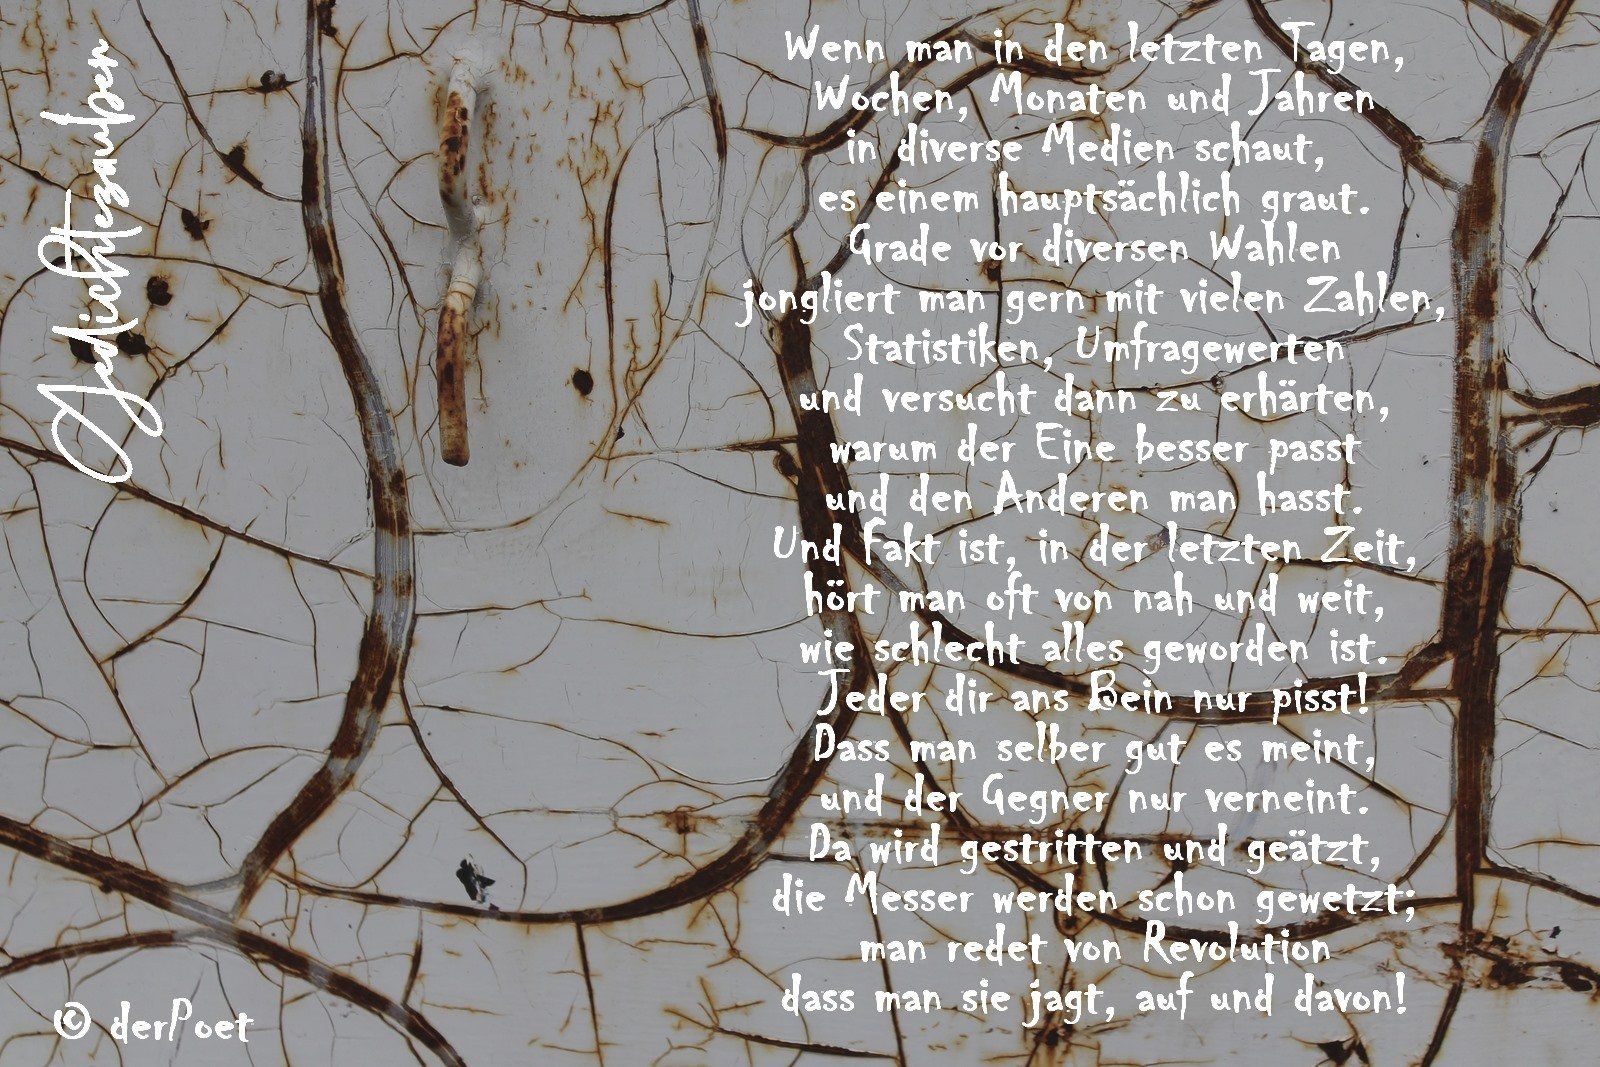 Gedichtezauber
Wenn man in den letzten Tagen,
Wochen, Monaten und Jahren
in diverse Medien schaut,
es einem hauptsächlich graut.
Grade vor diversen Wahlen
jongliert man gern mit vielen Zahlen,
Statistiken, Umfragewerten
und versucht dann zu erhärten,
warum der Eine besser passt
und den Anderen man hasst.
Und Fakt ist, in der letzten Zeit,
hört man oft von nah und weit,
wie schlecht alles geworden ist.
Jeder dir ans Bein nur pisst!
Dass man selber gut es meint,
und der Gegner nur verneint.
Da wird gestritten und geätzt,
die Messer werden schon gewetzt;
man redet von Revolution
dass man sie jagt, auf und davon!
© derPoet